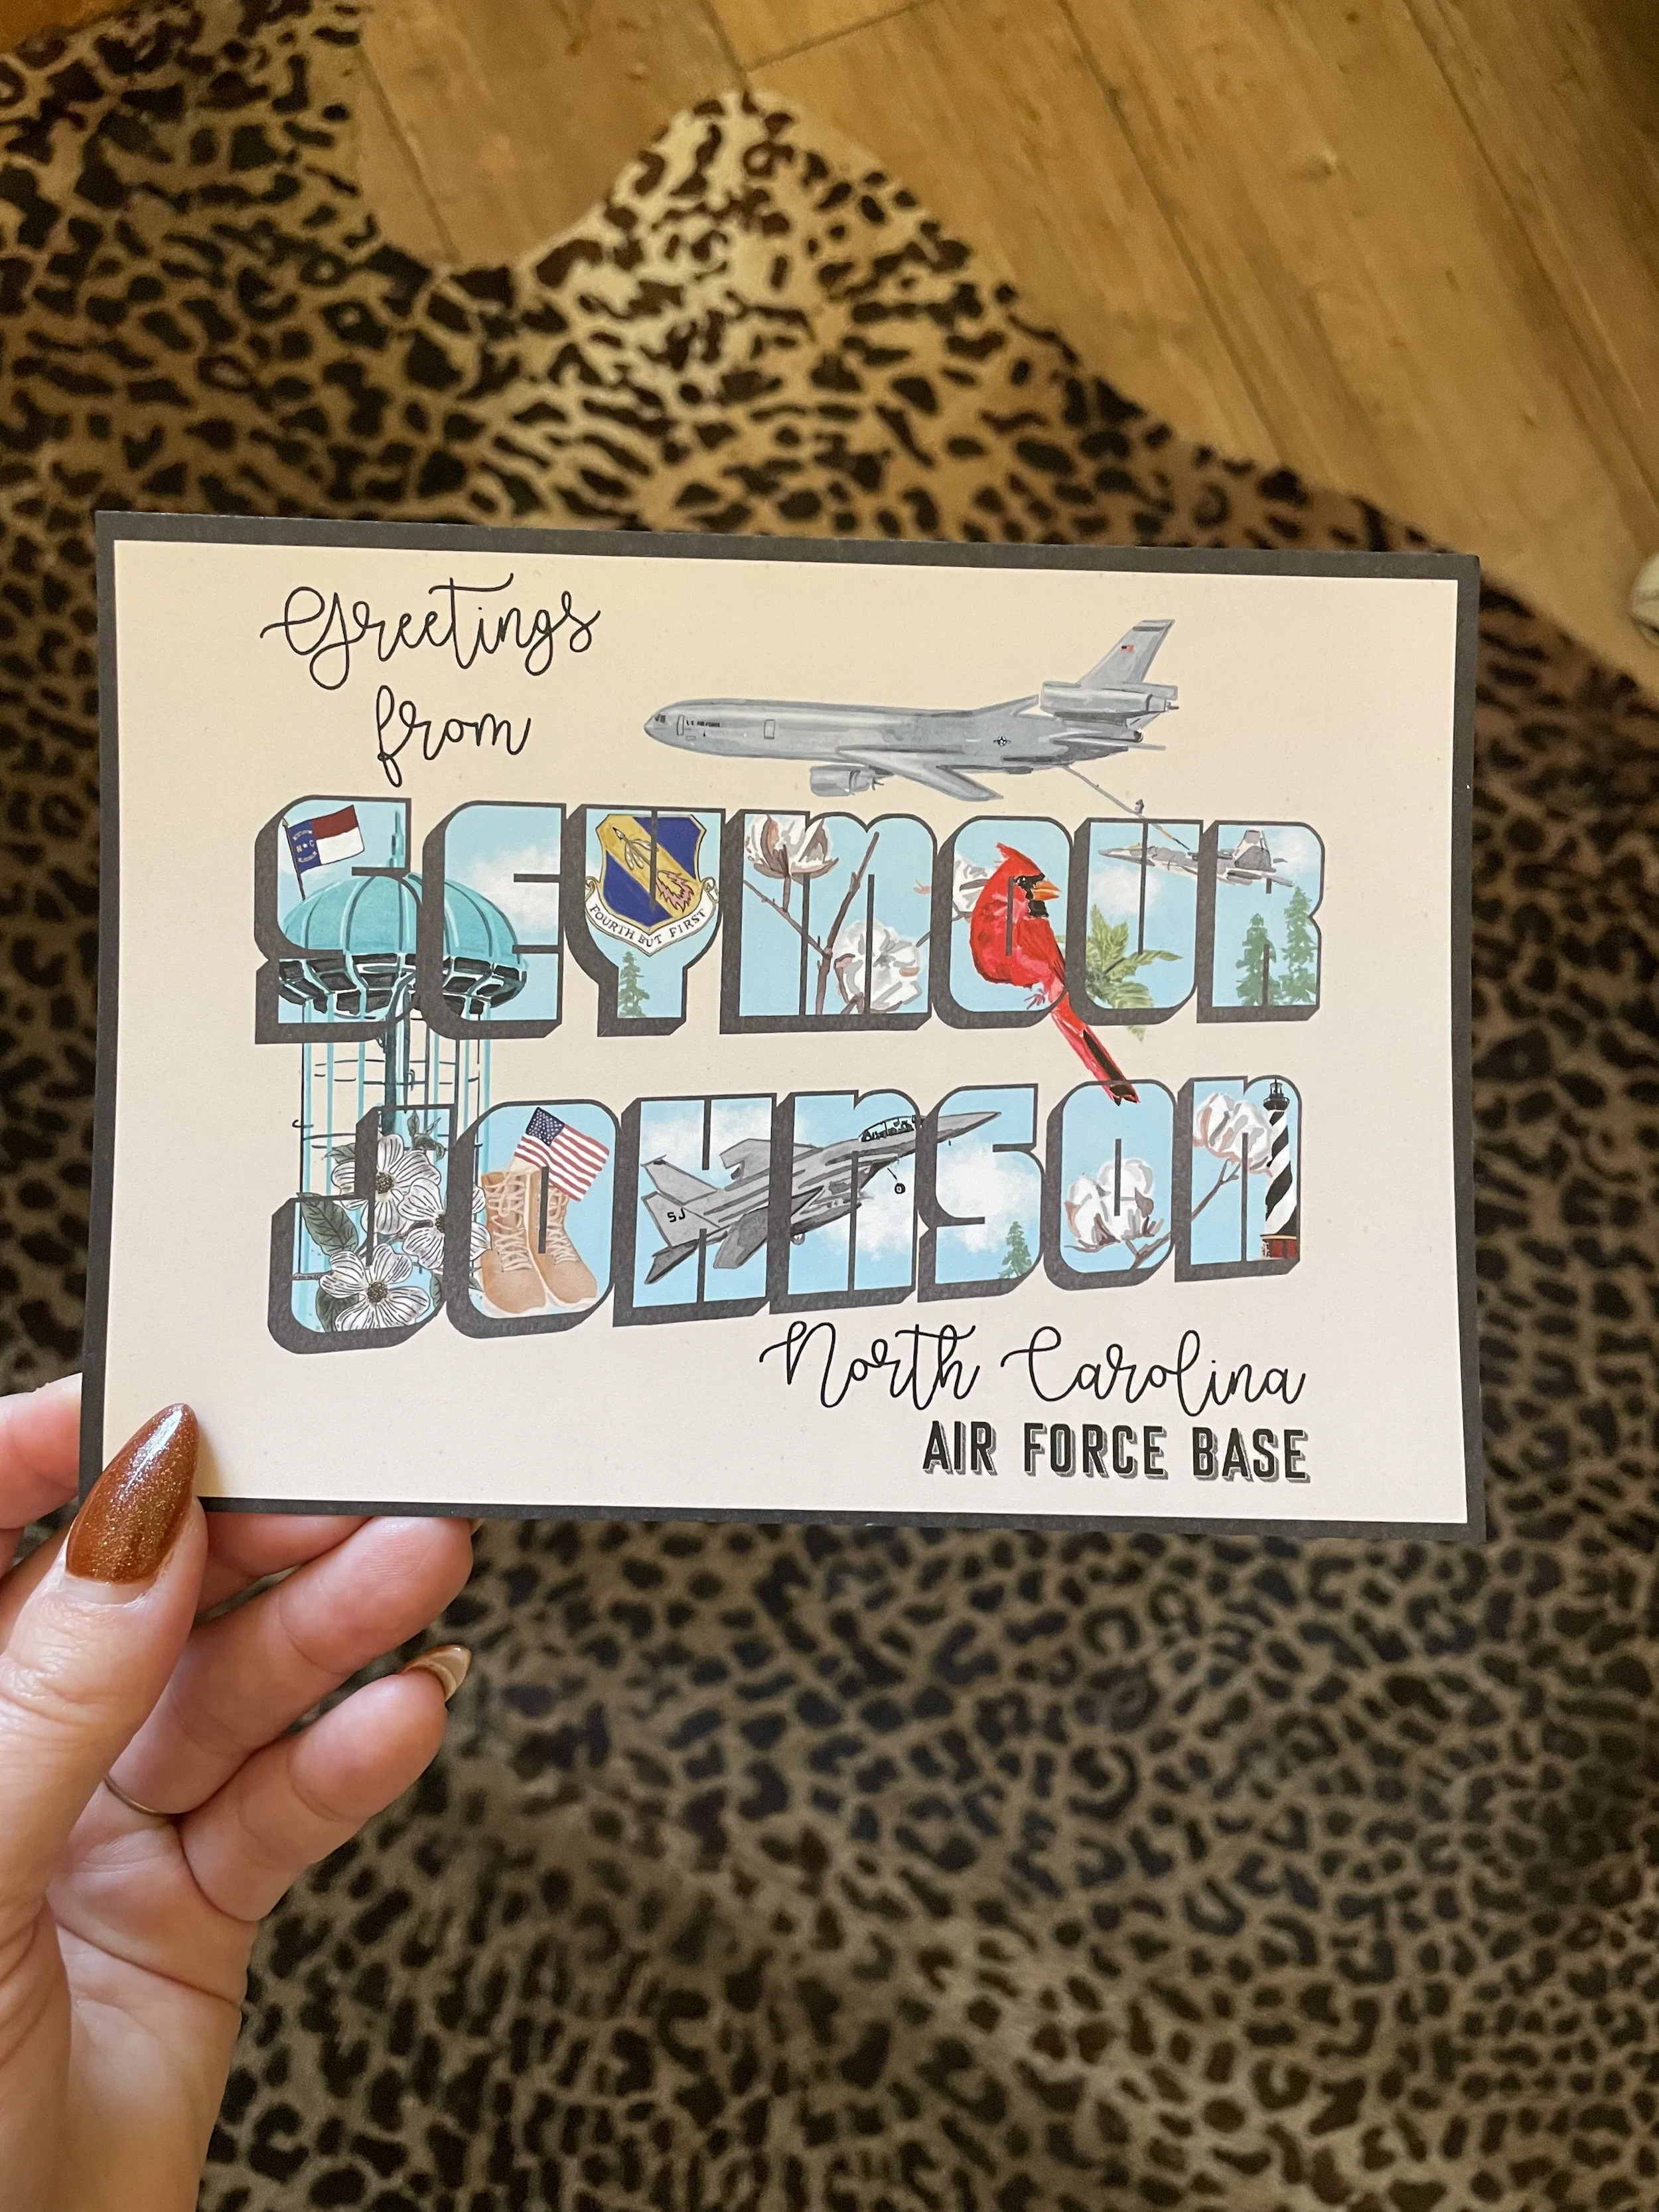 Greetings
from
U.S. AIR FORCE
N C
FOURTH BUT FIRST
SEYMOUR
SJ
JOHNSON
North Carolina
AIR FORCE BASE